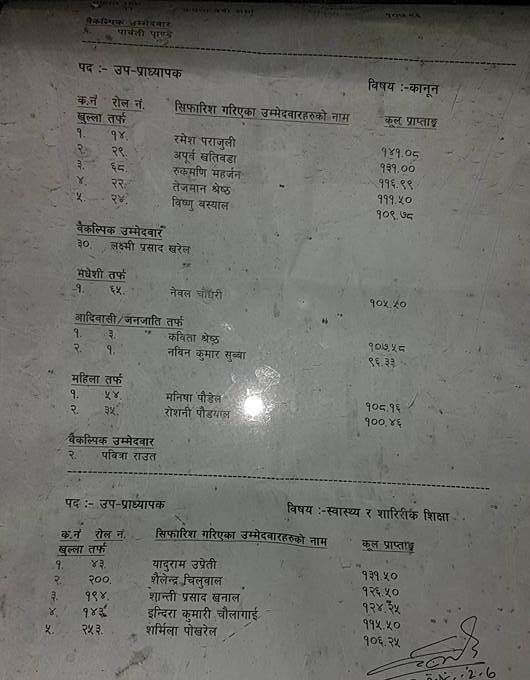 वैकल्पिक उम्मेदवार
पार्वती पाण्डे
पद :- उप-प्राध्यापक
विषय :-कानून
क.नं रोल नं. सिफारिश गरिएका उम्मेदवारहरुको नाम कूल प्राप्ताङ्क
खुल्ला तर्फ
१. १४. रमेश पराजुली १४१.०८
२. २९. अपूर्व खतिवडा १३१.००
३. ६८. रुकमणि महर्जन ११६.९९
४. २२. तेजमान श्रेष्ठ १११.५०
५. २४. विष्णु बस्याल १०९.७८
वैकल्पिक उम्मेदवार
३०. लक्ष्मी प्रसाद खरेल
मधेशी तर्फ
१. ६५. नेवल चौधरी १०५.५०
आदिवासी/जनजाति तर्फ
१. ३. कविता श्रेष्ठ १०७.५८
२. १. नविन कुमार सुब्बा ९६.३३
महिला तर्फ
१. ५४. मनिषा पौडेल १०८.१६
२. ३५. रोशनी पौडयाल १००.४६
वैकल्पिक उम्मेदवार
२. पवित्रा राउत
पद :- उप-प्राध्यापक
विषय :-स्वास्थ्य र शारिरीक शिक्षा
क.नं रोल नं. सिफारिश गरिएका उम्मेदवारहरुको नाम कूल प्राप्ताङ्क
खुल्ला तर्फ
१. ४३. यादुराम उप्रेती १३१.५०
२. २००. शैलेन्द्र चिलुवाल १२६.५०
३. १९४. शान्ती प्रसाद खनाल १२४.२५
४. १४३. इन्दिरा कुमारी चौलागाई ११५.५०
५. २५३. शर्मिला पोखरेल १०६.२५